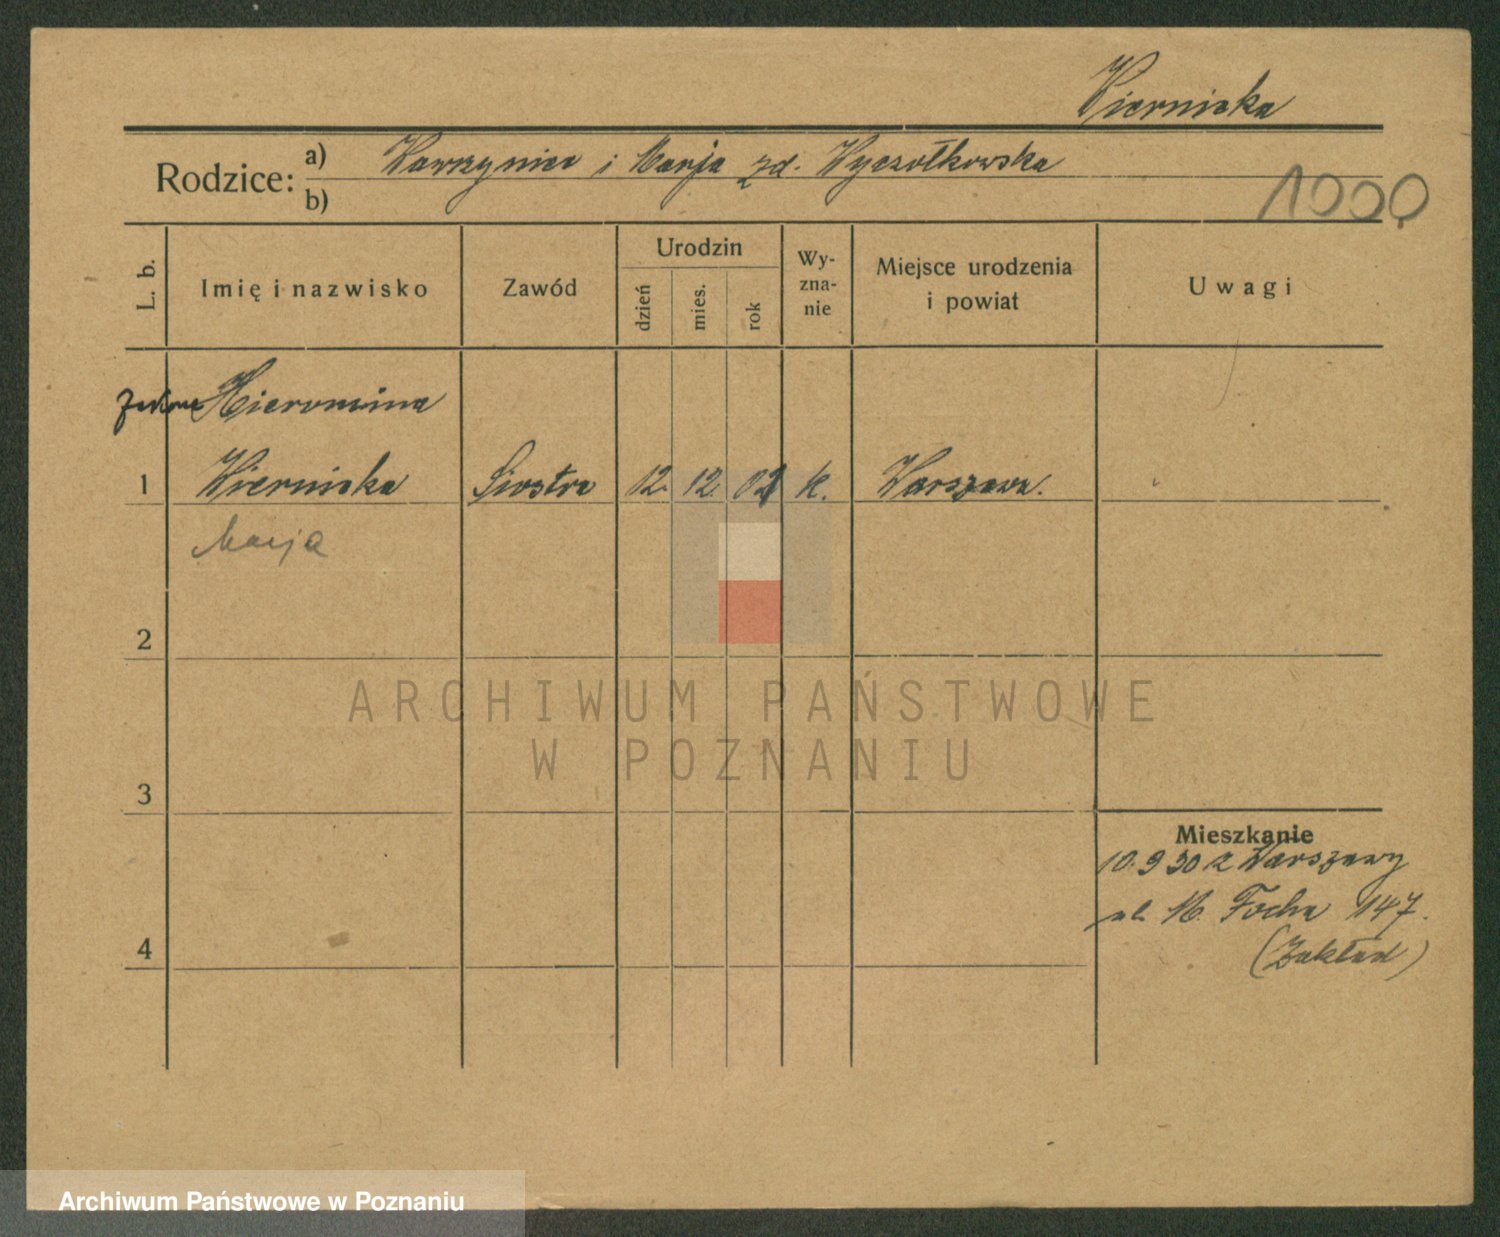 Wiernicka
Rodzice: a) Wawrzyniec i Marja zd. Wyczółkowska
b)
1000
L. b. Imię i nazwisko Zawód Urodzin dzień mies. rok Wyznanie Miejsce urodzenia i powiat Uwagi
Hieronima
1 Wiernicka Siostra 12. 12. 02 k. Warszawa.
Marja
2
3
Mieszkanie
10.9 30 z Warszawy
ul. M. Focha 147.
(Zakład)
4
ARCHIWUM PAŃSTWOWE
W POZNANIU
Archiwum Państwowe w Poznaniu